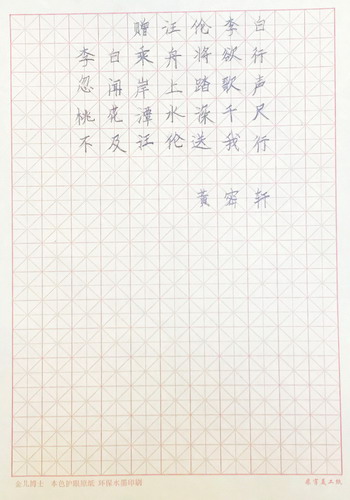 赠汪伦李白
李白乘舟将欲行
忽闻岸上踏歌声
桃花潭水深千尺
不及汪伦送我行
黄宻轩
金儿博士 本色护眼原纸 环保水墨印刷